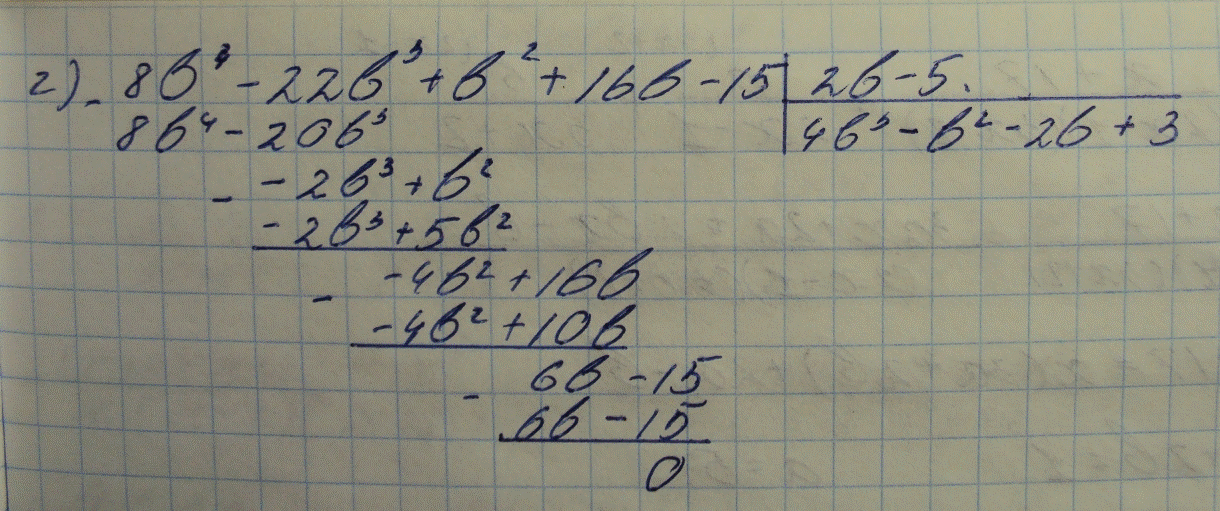 г) - 8b⁴ - 22b³ + b² + 16b - 15 | 2b - 5.
8b⁴ - 20b³ | 4b³ - b² - 2b + 3
- - 2b³ + b²
- 2b³ + 5b²
- - 4b² + 16b
- 4b² + 10b
- 6b - 15
6b - 15
0